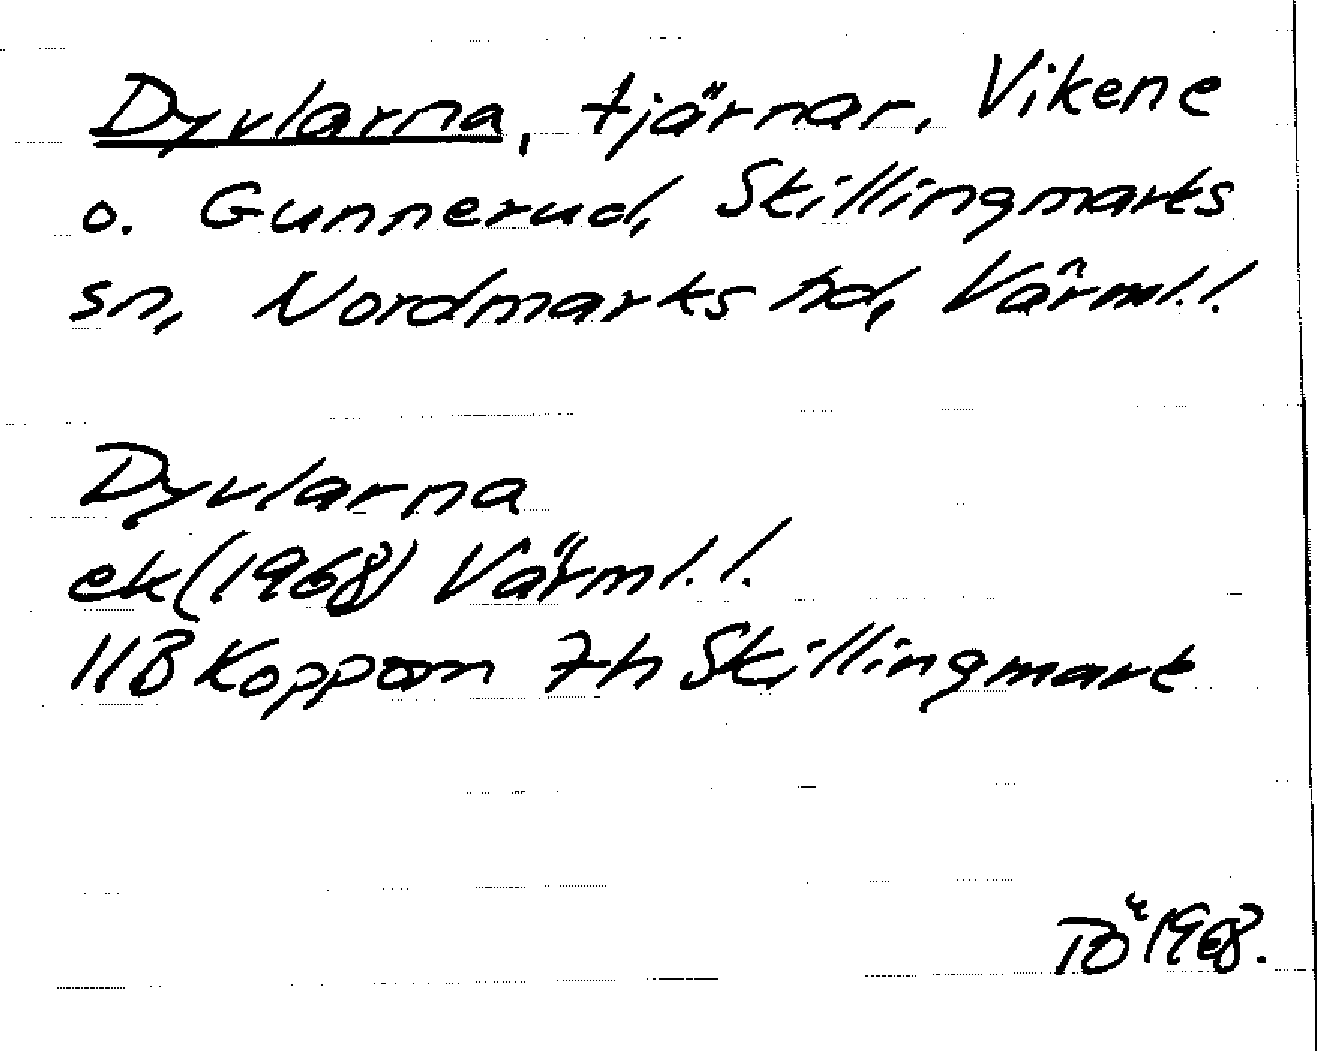 Dyvlarna, tjärnar, Vikene
o. Gunnerud, Skillingmarks
sn, Nordmarks hd, Värml. l.
Dyvlarna
ek (1968) Värml. l.
11B Koppom 7h Skillingmark
1968.